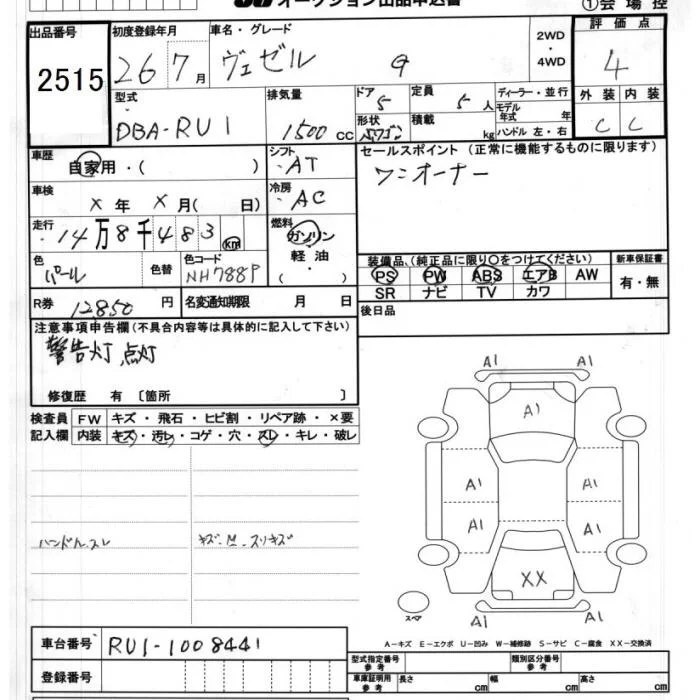 オークション出品申込書
①会場控
出品番号 初度登録年月 車名・グレード 2WD・4WD 評価点
2515 26年7月 ヴェゼル G 4
型式 DBA-RU1 排気量 1500 CC ドア 5 定員 5人 ディーラー・並行 外装 内装
形状 5ワゴン 積載 kg モデル年式 年 ハンドル 左・右 C C
車歴 自家用・( ) シフト AT セールスポイント (正常に機能するものに限ります)
車検 X年 X月( 日) 冷房 AC ワンオーナー
走行 14万8千483 km 燃料 ガソリン 軽油 ・( )
色 パール 色替 色コード NH788P
装備品、(純正品に限り○をつけてください) 新車保証書
PS PW ABS エアB AW 有・無
SR ナビ TV カワ
R券 12,850円 名変通知期限 月 日 後日品
注意事項申告欄(不具合内容等は具体的に記入して下さい)
警告灯点灯
修復歴 有 〔箇所 〕
検査員 FW キズ・飛石・ヒビ割・リペア跡・×要
記入欄 内装 キズ・汚レ・コゲ・穴・スレ・キレ・破レ
ハンドルスレ キズ・M・スリキズ
A1 A1
A1
A1 A1
A1 A1
XX
A1 A1
スペア
A−キズ E−エクボ U−凹み W−補修跡 S−サビ C−腐食 XX−交換済
車台番号 RU1-1008441
型式指定番号 参考 類別区分番号 参考
登録番号
車庫証明用 参考 長さ cm 幅 cm 高さ cm